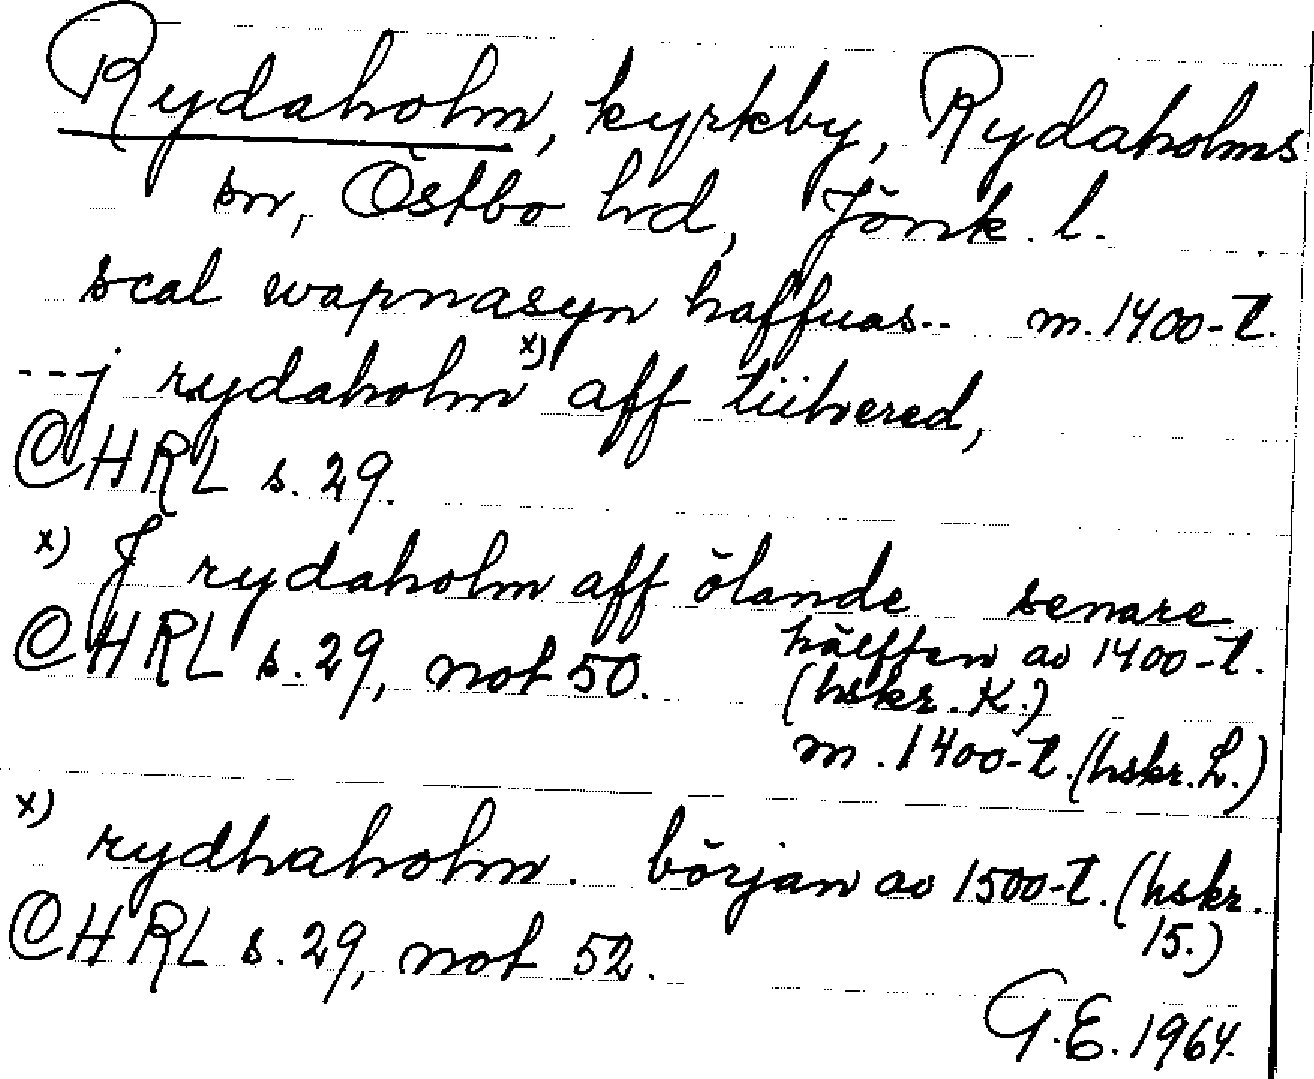 Rydaholm, kyrkby, Rydaholms
sn, Östbo hd, Jönk. l.
scal wapnasyn haffuas.. m. 1400-t.
---j rydaholm x) aff tiihered,
CHRL s. 29.
x) J rydaholm aff ölande senare
hälften av 1400-t.
CHRL s. 29, not 50. (hskr. K.)
m. 1400-t. (hskr. L.)
x) rydhaholm. början av 1500-t. (hskr.
15.)
CHRL s. 29, not 52.
G.E. 1964.